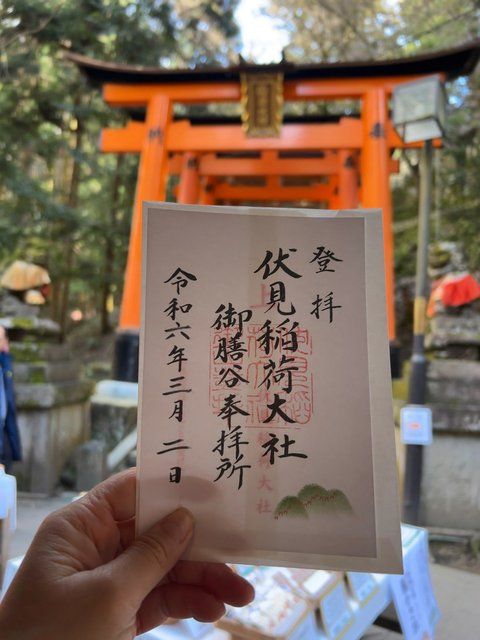 登拝
伏見稲荷大社
御膳谷奉拝所
令和六年三月二日